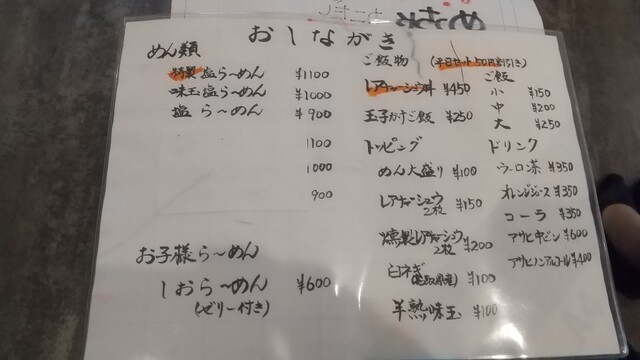 おしながき
めん類
特製塩らーめん ¥1100
味玉塩らーめん ¥1000
塩らーめん ¥900
1100
1000
900
お子様らーめん
しおらーめん ¥600
(ゼリー付き)
ご飯物
(平日セット50円割引き)
レアチャーシュウ丼 ¥450
玉子かけご飯 ¥250
トッピング
めん大盛り ¥100
レアチャーシュウ 2枚 ¥150
燻製レアチャーシュウ 2枚 ¥200
白ネギ
(鳥取県産) ¥100
半熟味玉 ¥100
ご飯
小 ¥150
中 ¥200
大 ¥250
ドリンク
ウーロン茶 ¥350
オレンジジュース ¥350
コーラ ¥350
アサヒ中ビン ¥600
アサヒノンアルコール ¥400